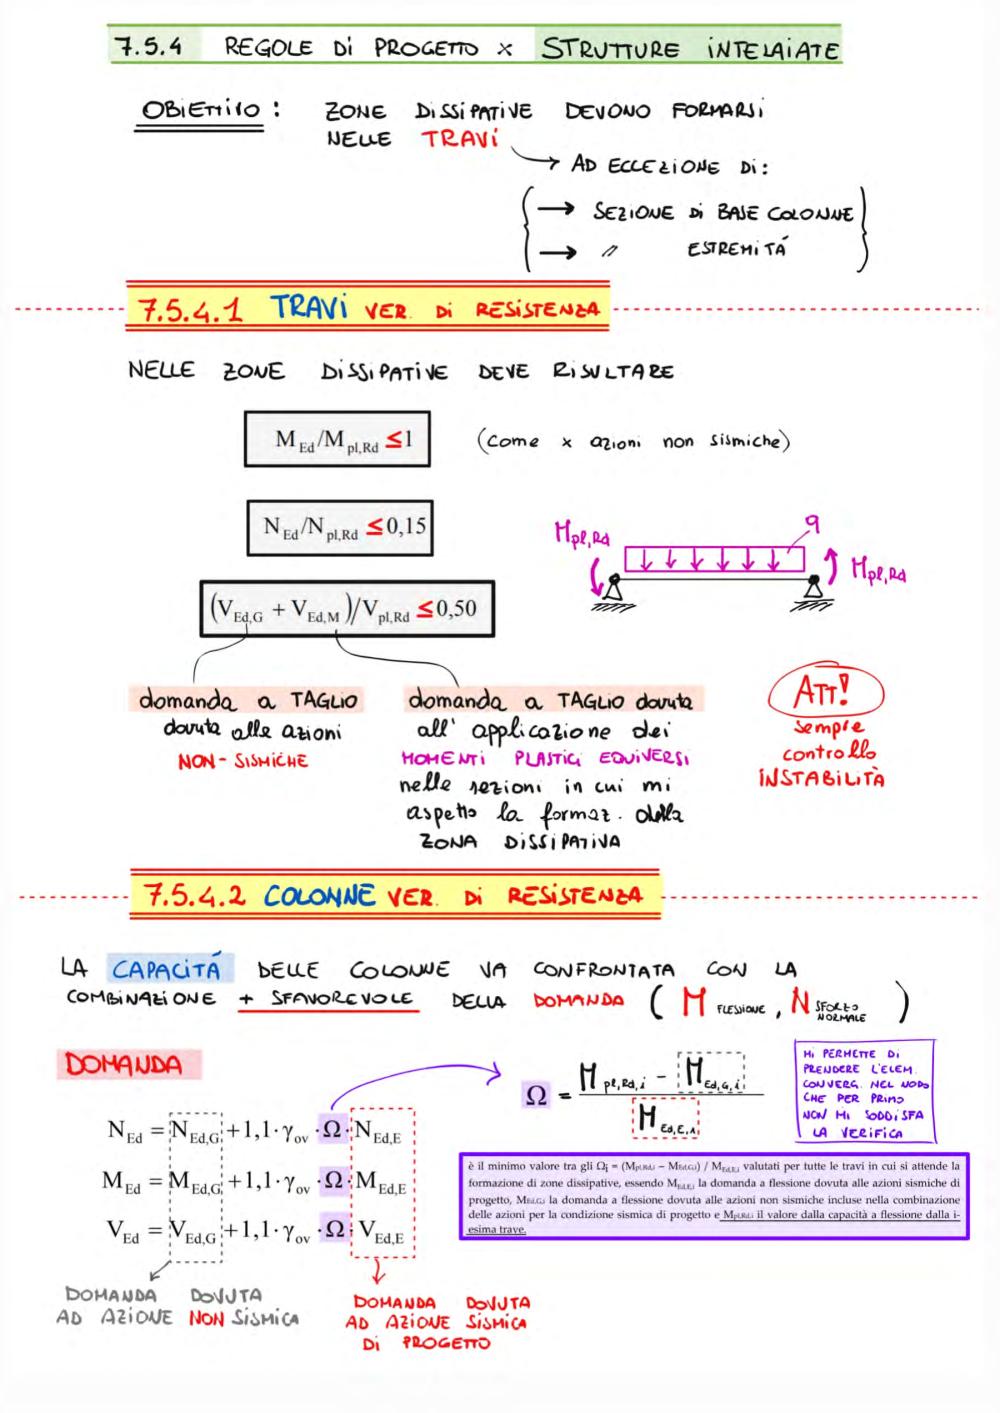 7.5.4 REGOLE Di PROGETTO x STRUTTURE iNTELAiATE
OBiETTiVO : ZONE DiSSiPATiVE DEVONO FORMARSi
NELLE TRAVi
→ AD ECCEZIONE Di :
→ SEZIONE Di BASE COLONNE
→ // ESTREMiTÁ
7.5.4.1 TRAVi VER. Di RESiSTENZA
NELLE ZONE DiSSiPATiVE DEVE RiSULTARE
M Ed /M pl,Rd ≤ 1 (come x azioni non sismiche)
N Ed /N pl,Rd ≤ 0,15
M pl,Rd q M pl,Rd
(V Ed,G + V Ed,M )/V pl,Rd ≤ 0,50
domanda a TAGLIO
dovuta alle azioni
NON- SiSMiCHE
domanda a TAGLIO dovuta
all' applicazione dei
MOMENTi PLASTICi EQUiVERSi
nelle sezioni in cui mi
aspetto la formaz. della
ZONA DiSSiPATiVA
ATT!
sempre
controllo
iNSTABiLiTÀ
7.5.4.2 COLONNE VER. Di RESiSTENZA
LA CAPACiTÁ DELLE COLONNE VA CONFRONTATA CON LA
COMBiNAZiONE + SFAVOREVOLE DELLA DOMANDA ( M FLESSiONE , N SFORZO NORMALE )
DOMANDA
N Ed = N Ed,G + 1,1 · γ ov · Ω · N Ed,E
M Ed = M Ed,G + 1,1 · γ ov · Ω · M Ed,E
V Ed = V Ed,G + 1,1 · γ ov · Ω · V Ed,E
DOMANDA DOVUTA
AD AZIONE NON SiSMiCA
DOMANDA DOVUTA
AD AZIONE SiSMiCA
Di PROGETTO
Ω = M pl,Rd,i - M Ed,G,i / M Ed,E,i
Mi PERMETTE Di
PRENDERE L'ELEM.
CONVERG. NEL NODO
CHE PER PRIMO
NON Mi SODDiSFA
LA VERiFiCA
è il minimo valore tra gli Ωi = (Mpl,Rd,i – MEd,G,i) / MEd,E,i valutati per tutte le travi in cui si attende la
formazione di zone dissipative, essendo MEd,E,i la domanda a flessione dovuta alle azioni sismiche di
progetto, MEd,G,i la domanda a flessione dovuta alle azioni non sismiche incluse nella combinazione
delle azioni per la condizione sismica di progetto e Mpl,Rd,i il valore dalla capacità a flessione dalla i-
esima trave.